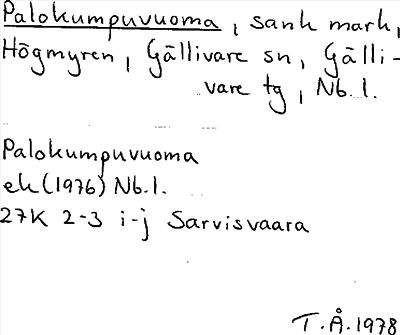 Palokumpuvuoma, sank mark,
Högmyren, Gällivare sn, Gälli-
vare tg, Nb.l.
Palokumpuvuoma
ek (1976) Nb.l.
27K 2-3 i-j Sarvisvaara
T.Å.1978